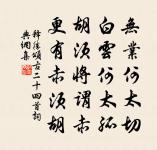 無業何太切
白雲何太
胡須將謂赤
更有赤須胡
釋頌古二十四首詞
典網集